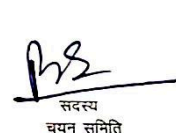 सदस्य
चयन समिति